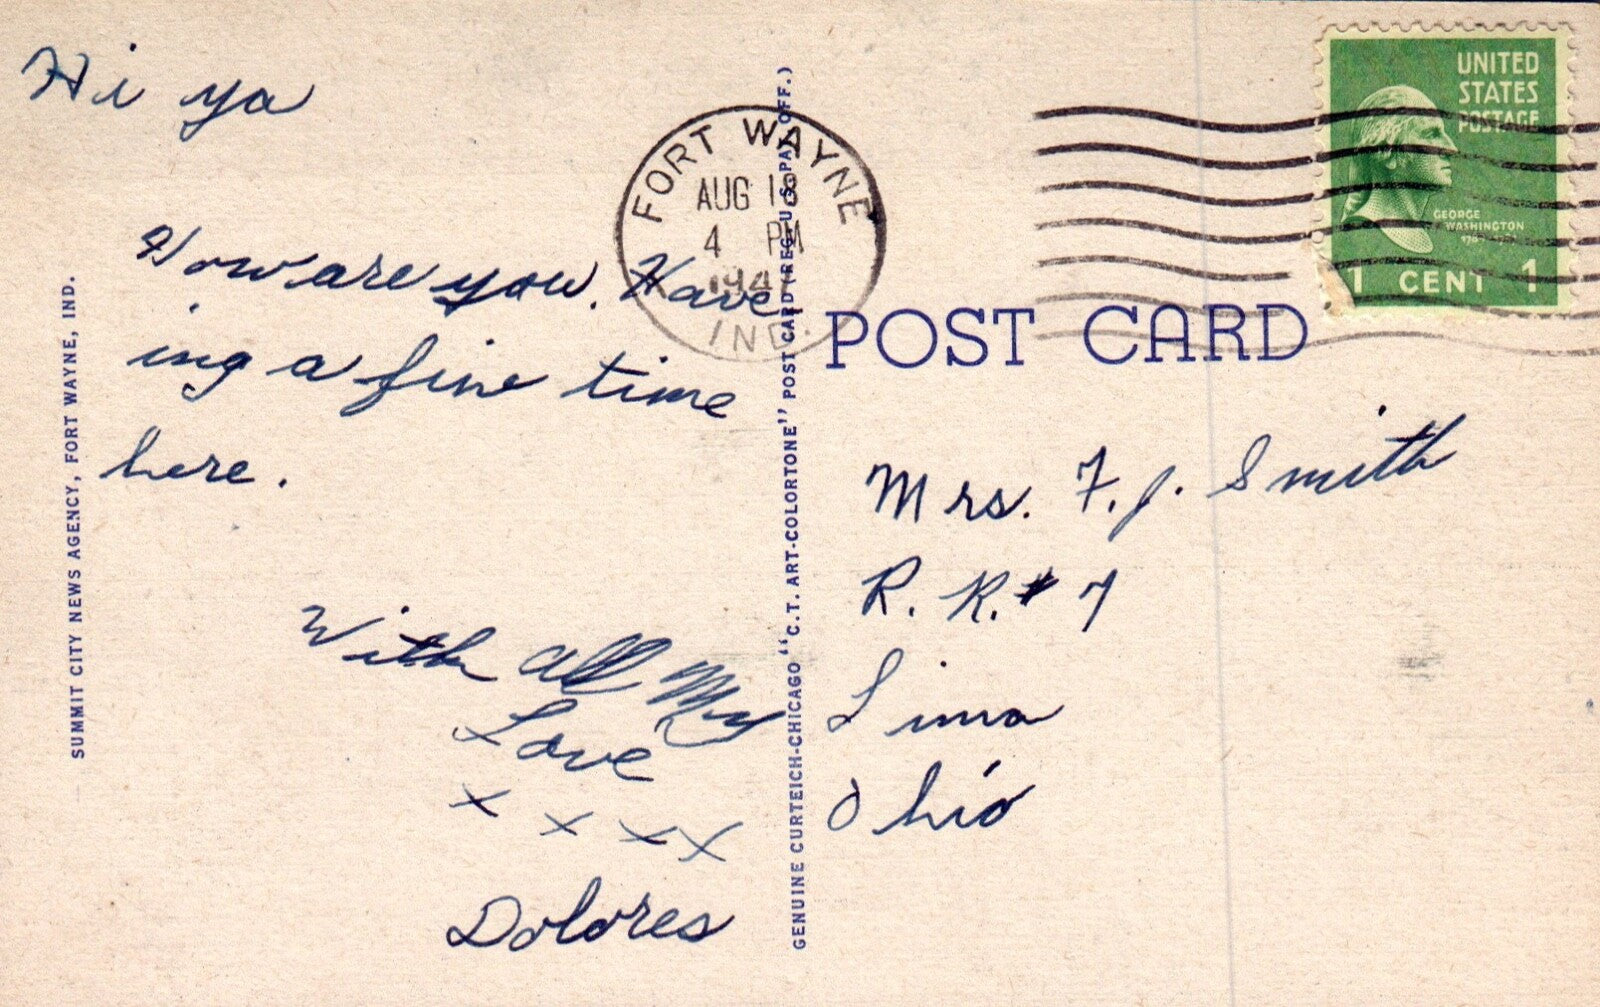 Hi ya
How are you. Have
ing a fine time
here.
With all My
Love
x x x x
Dolores
SUMMIT CITY NEWS AGENCY, FORT WAYNE, IND.
GENUINE CURTEICH-CHICAGO "C.T. ART-COLORTONE" POST CARD (REG. U.S. PAT. OFF.)
FORT WAYNE
AUG 18
4 PM
IND.
UNITED
STATES
POSTAGE
GEORGE
WASHINGTON
1 CENT 1
POST CARD
Mrs. F. J. Smith
R. R. # 7
Lima
Ohio